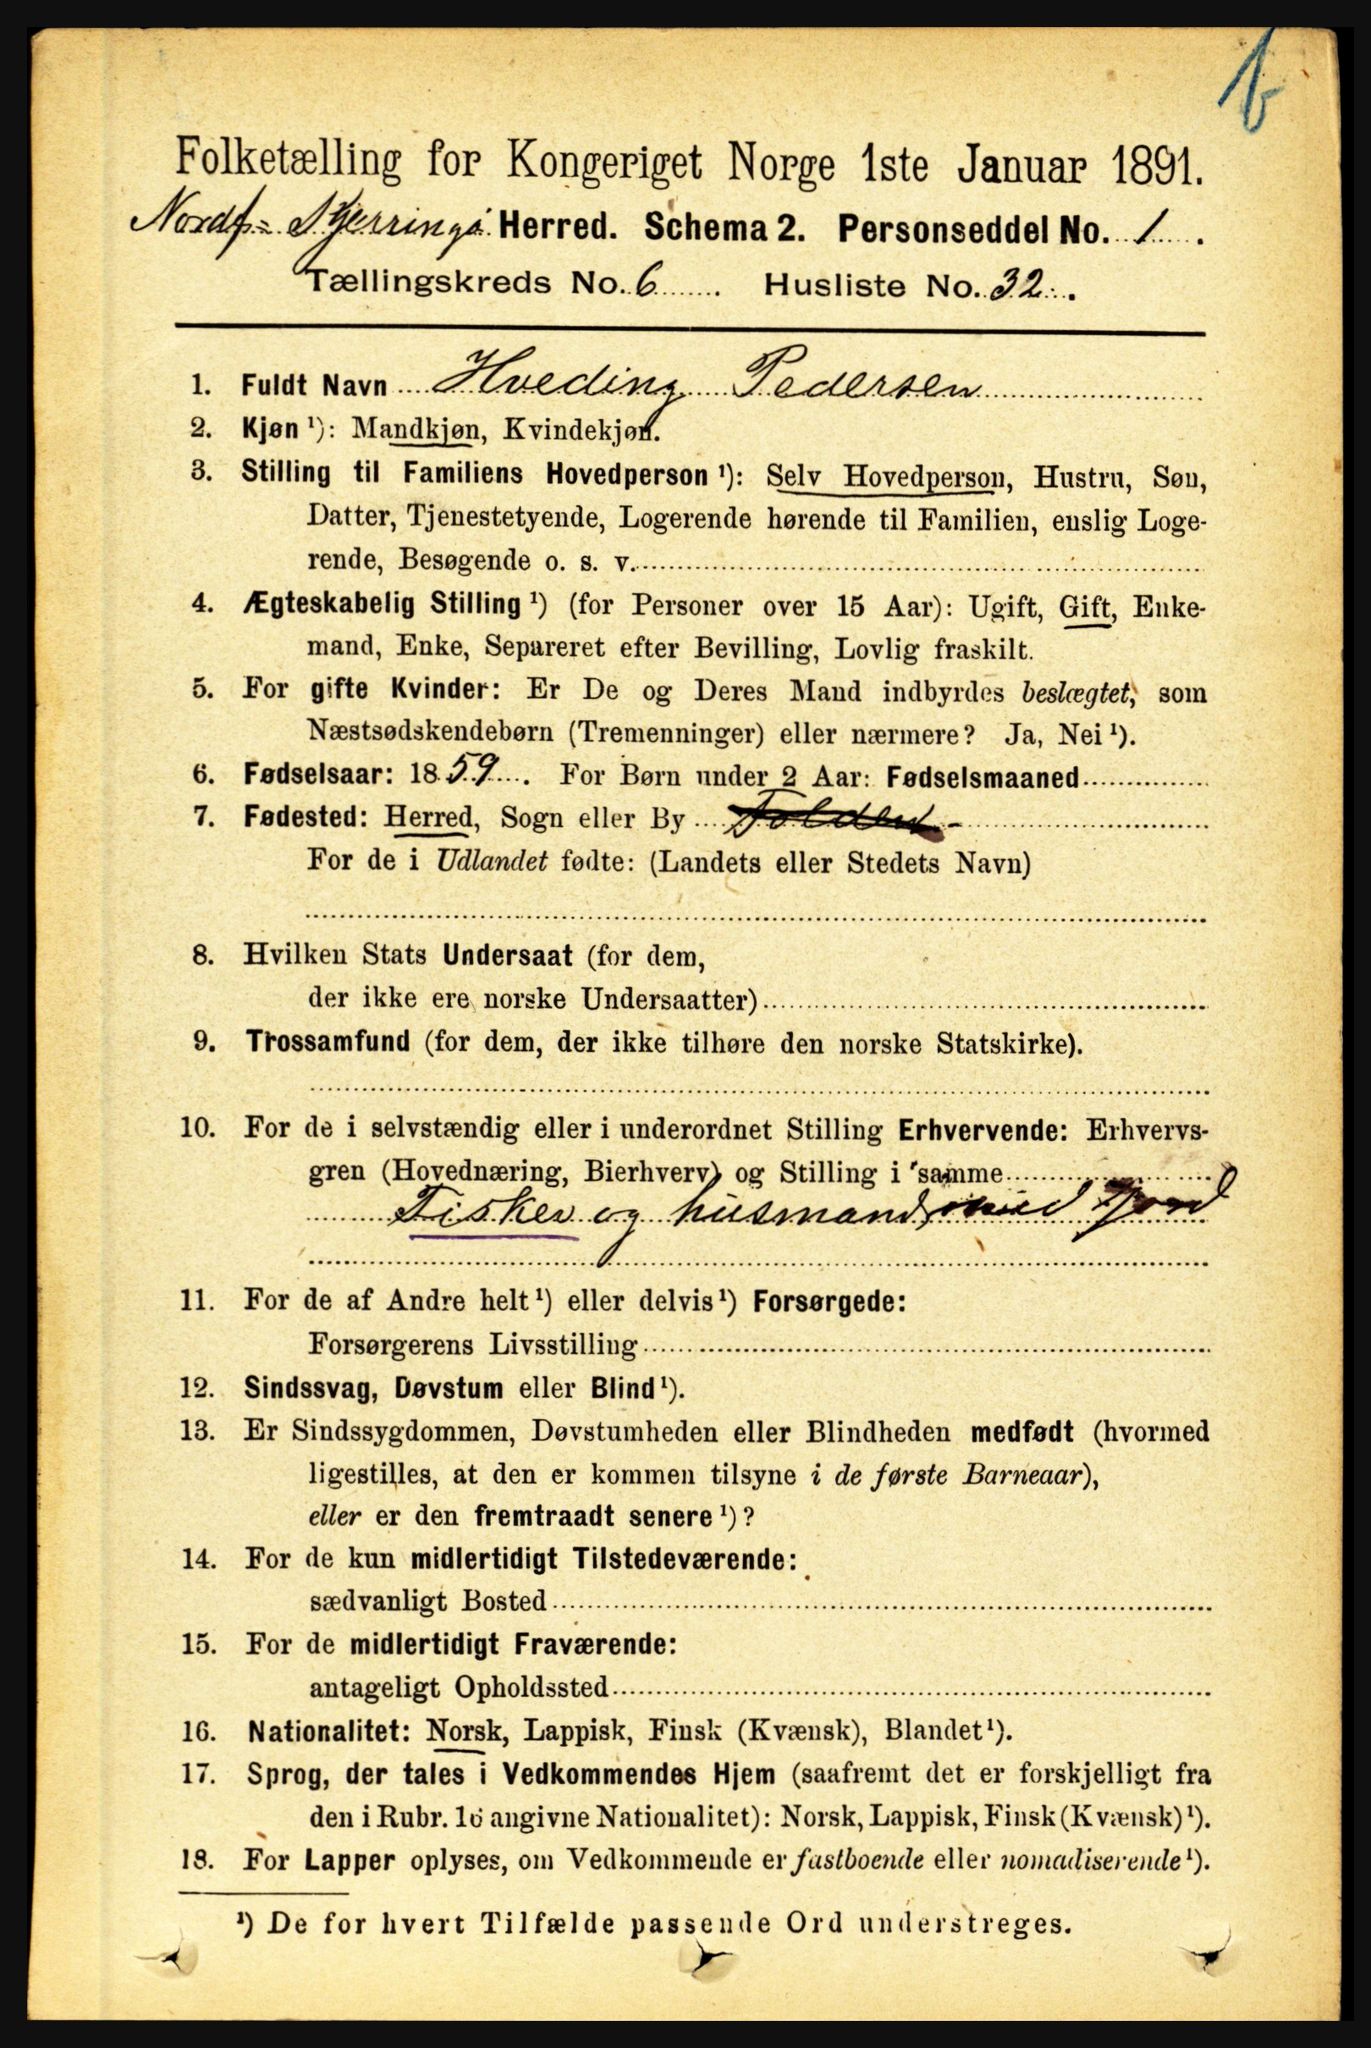 b
Folketælling for Kongeriget Norge 1ste Januar 1891.
Nordf- Kjerringø Herred. Schema 2. Personseddel No. 1.
Tællingskreds No. 6. Husliste No. 32.
1. Fuldt Navn Hveding Pedersen
2. Kjøn ¹): Mandkjøn, Kvindekjøn.
3. Stilling til Familiens Hovedperson ¹): Selv Hovedperson, Hustru, Søn,
Datter, Tjenestetyende, Logerende hørende til Familien, enslig Loge-
rende, Besøgende o. s. v.
4. Ægteskabelig Stilling ¹) (for Personer over 15 Aar): Ugift, Gift, Enke-
mand, Enke, Separeret efter Bevilling, Lovlig fraskilt.
5. For gifte Kvinder: Er De og Deres Mand indbyrdes beslægtet, som
Næstsødskendebørn (Tremenninger) eller nærmere? Ja, Nei ¹).
6. Fødselsaar: 1859. For Børn under 2 Aar: Fødselsmaaned
7. Fødested: Herred, Sogn eller By Folden -
For de i Udlandet fødte: (Landets eller Stedets Navn)
8. Hvilken Stats Undersaat (for dem,
der ikke ere norske Undersaatter)
9. Trossamfund (for dem, der ikke tilhøre den norske Statskirke).
10. For de i selvstændig eller i underordnet Stilling Erhvervende: Erhvervs-
gren (Hovednæring, Bierhverv) og Stilling i samme
Fisker og husmand, med Jord
11. For de af Andre helt ¹) eller delvis ¹) Forsørgede:
Forsørgerens Livsstilling
12. Sindssvag, Døvstum eller Blind ¹).
13. Er Sindssygdommen, Døvstumheden eller Blindheden medfødt (hvormed
ligestilles, at den er kommen tilsyne i de første Barneaar),
eller er den fremtraadt senere ¹)?
14. For de kun midlertidigt Tilstedeværende:
sædvanligt Bosted
15. For de midlertidigt Fraværende:
antageligt Opholdssted
16. Nationalitet: Norsk, Lappisk, Finsk (Kvænsk), Blandet ¹).
17. Sprog, der tales i Vedkommendes Hjem (saafremt det er forskjelligt fra
den i Rubr. 16 angivne Nationalitet): Norsk, Lappisk, Finsk (Kvænsk) ¹).
18. For Lapper oplyses, om Vedkommende er fastboende eller nomadiserende ¹).
¹) De for hvert Tilfælde passende Ord understreges.